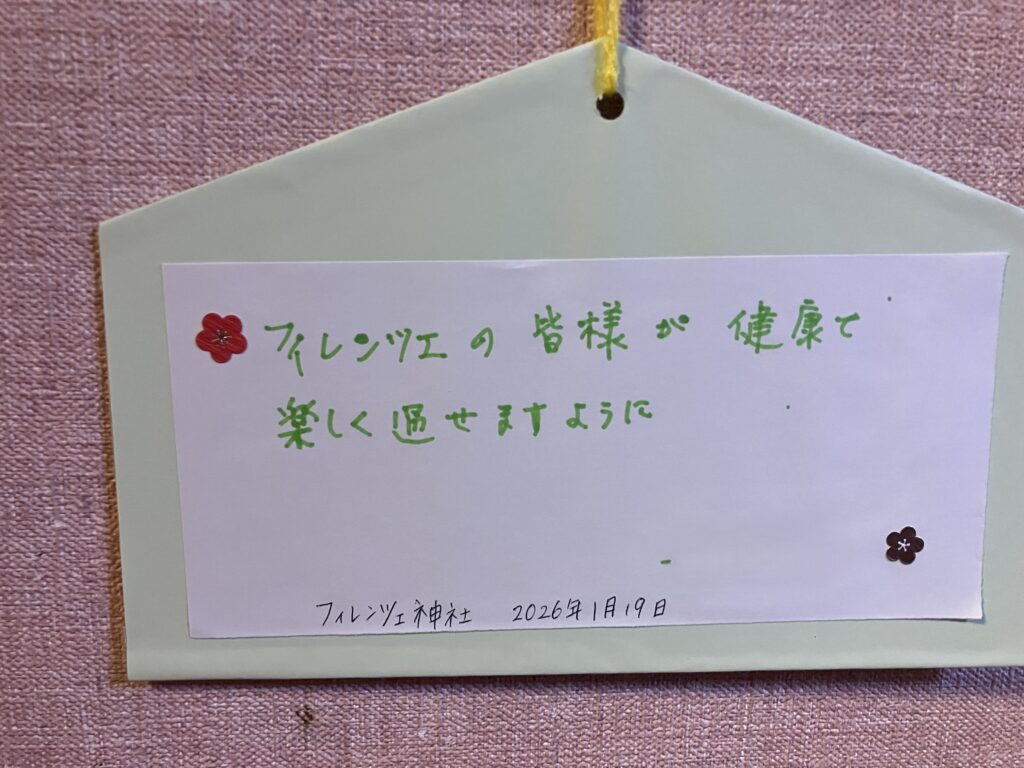 フィレンツェの皆様が健康で
楽しく過せますように
フィレンツェ神社 2026年1月19日